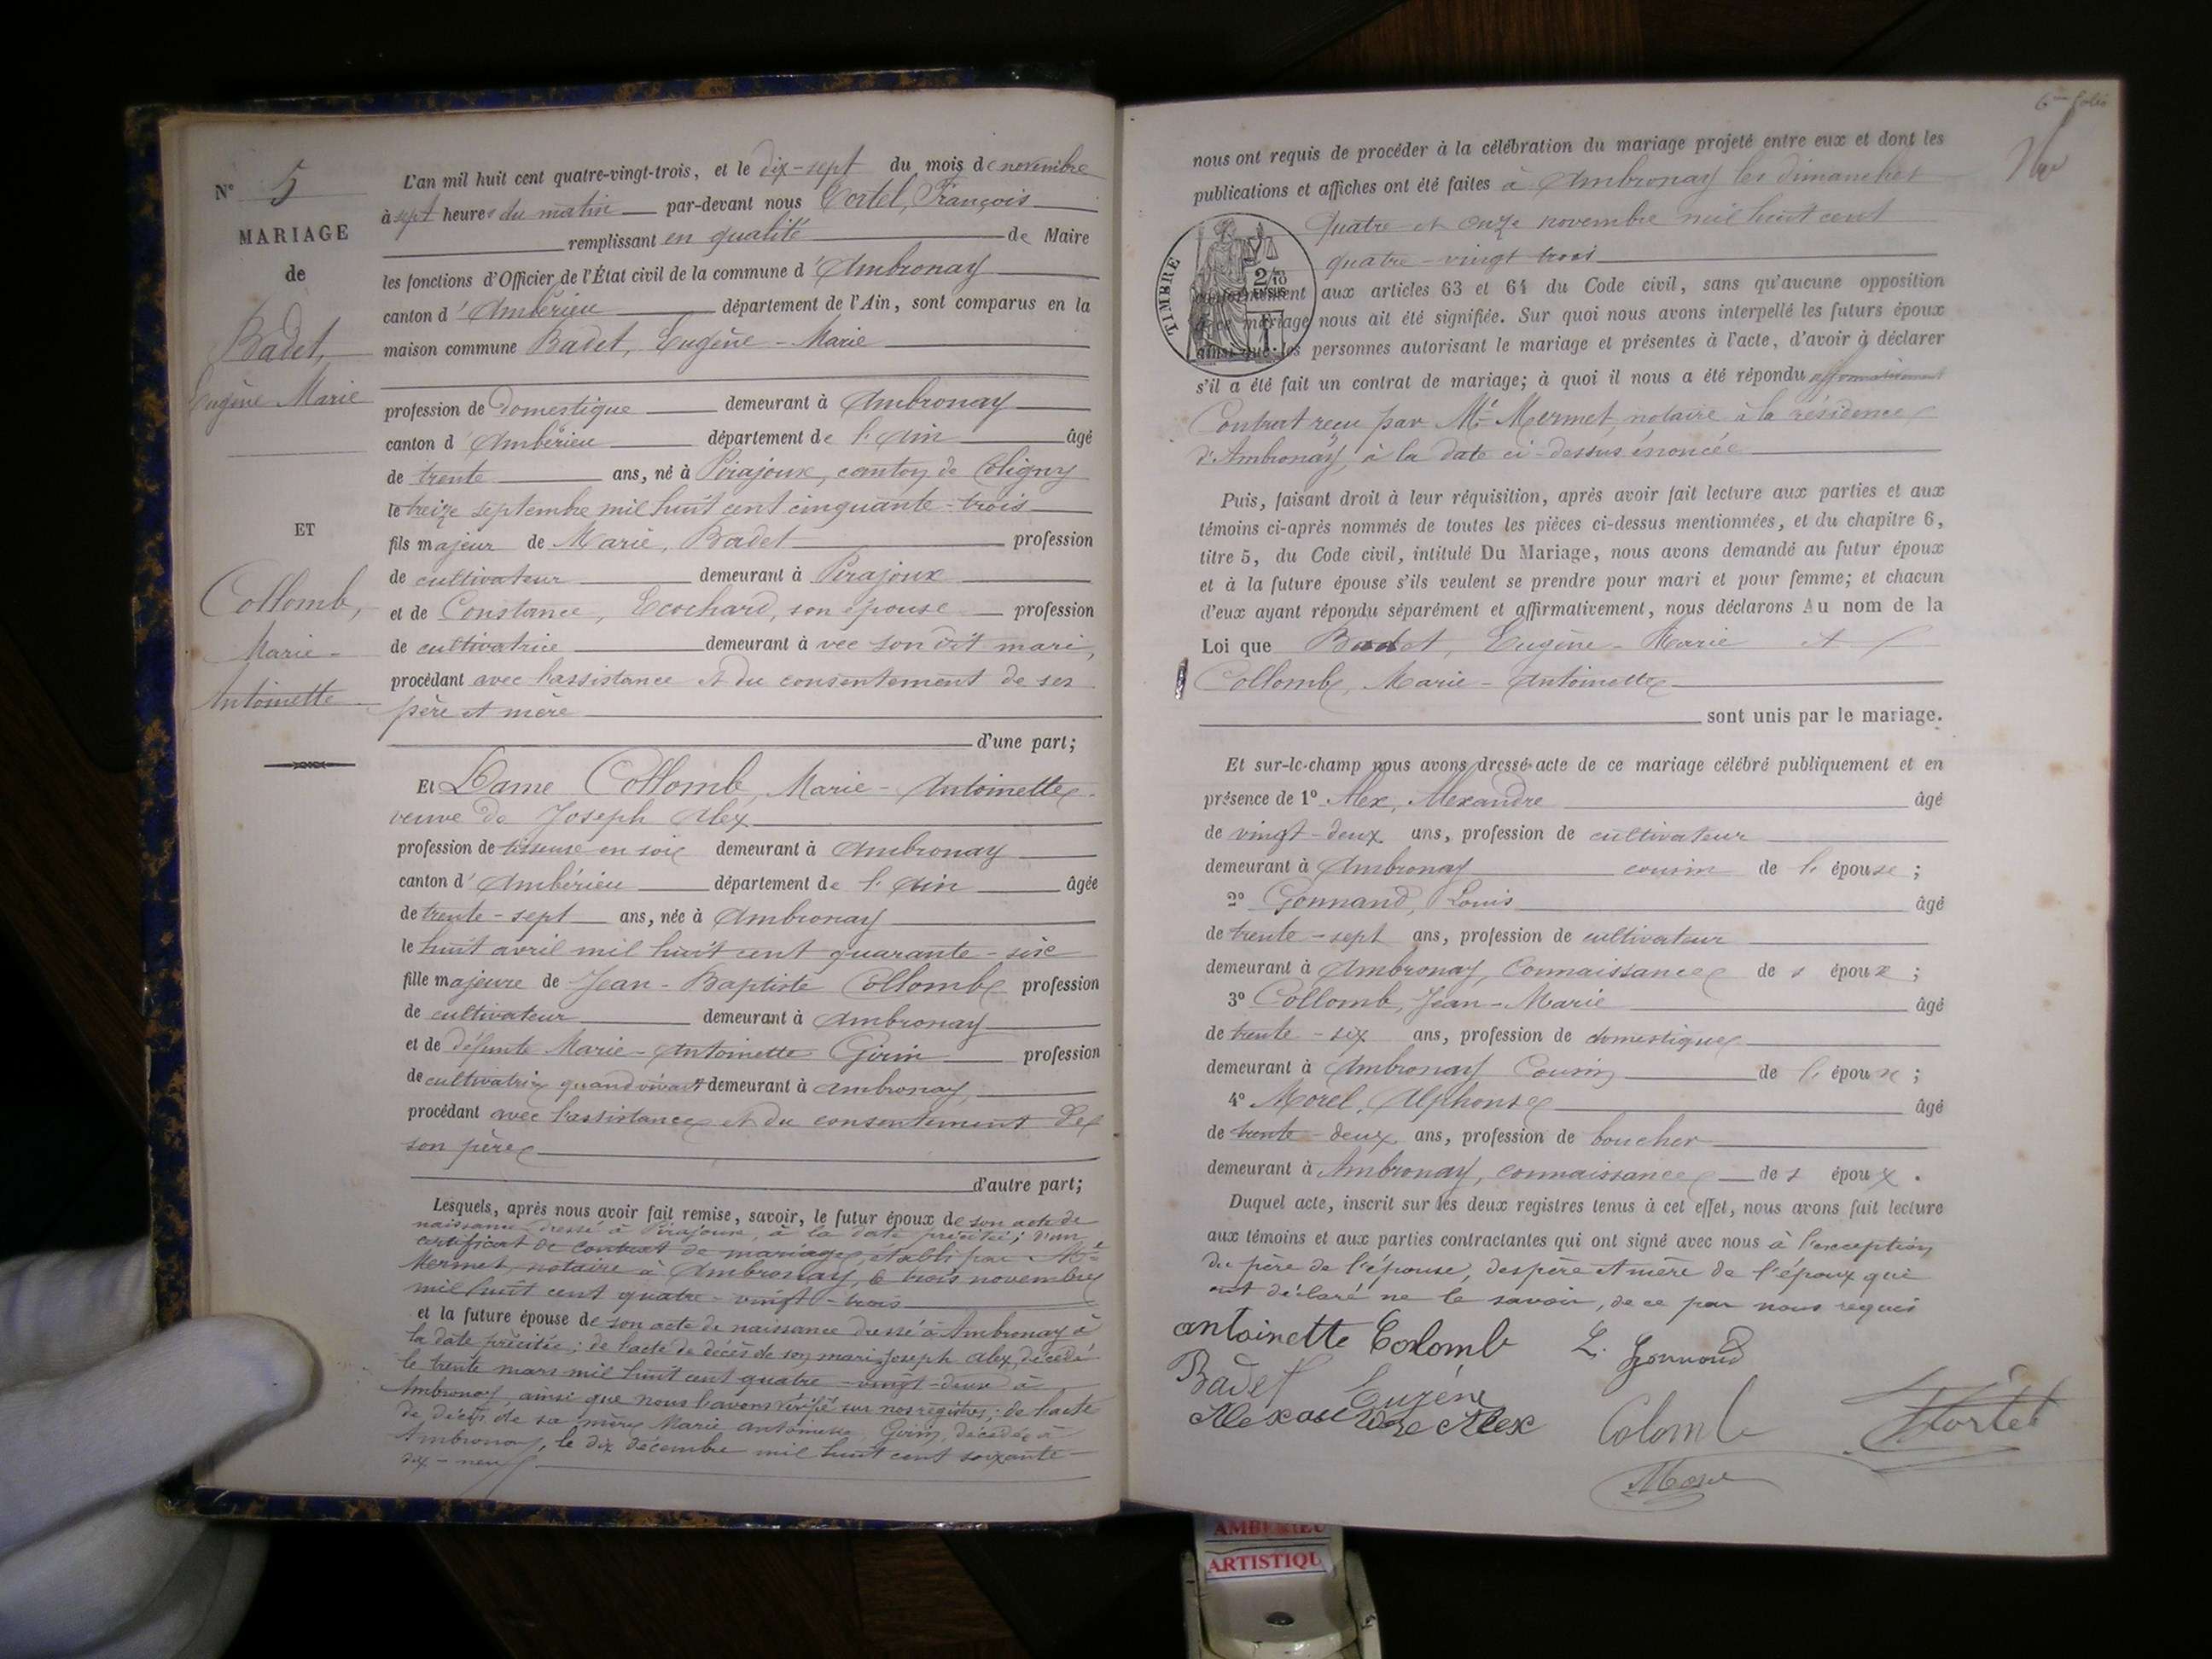 N° 5
MARIAGE
de
Badet,
Eugène Marie
ET
Collomb,
Marie-
Antoinette
L'an mil huit cent quatre-vingt-trois, et le dix-sept du mois de novembre
à sept heures du matin par-devant nous Tortel, François
remplissant en qualité de Maire
les fonctions d'Officier de l'État civil de la commune d'Ambronay
canton d'Ambérieu département de l'Ain, sont comparus en la
maison commune Badet, Eugène-Marie
profession de domestique demeurant à Ambronay
canton d'Ambérieu département de l'Ain âgé
de trente ans, né à Pirajoux, canton de Coligny
le treize septembre mil huit cent cinquante-trois
fils majeur de Marie, Badet profession
de cultivateur demeurant à Pirajoux
et de Constance, Ecochard, son épouse profession
de cultivatrice demeurant à vec son dit mari,
procédant avec l'assistance et du consentement de ses
père et mère
d'une part;
Et Dame Collomb, Marie-Antoinette
veuve de Joseph Alex
profession de tisseuse en soie demeurant à Ambronay
canton d'Ambérieu département de l'Ain âgée
de trente-sept ans, née à Ambronay
le huit avril mil huit cent quarante-six
fille majeure de Jean-Baptiste Collomb profession
de cultivateur demeurant à Ambronay
et de défunte Marie-Antoinette Girin profession
de cultivatrice quand vivait demeurant à Ambronay,
procédant avec l'assistance et du consentement de
son père
d'autre part;
Lesquels, après nous avoir fait remise, savoir, le futur époux de son acte de
naissance dressé à Pirajoux, à la date précitée; d'un
certificat de contrat de mariage, établi par Me
Mermet, notaire à Ambronay, le trois novembre
mil huit cent quatre-vingt-trois
et la future épouse de son acte de naissance dressé à Ambronay à
la date précitée; de l'acte de décès de son mari Joseph Alex, décédé
le trente mars mil huit cent quatre-vingt-deux à
Ambronay, ainsi que nous l'avons vérifié sur nos registres; de l'acte
de décès de sa mère Marie Antoinette Girin, décédée à
Ambronay, le dix décembre mil huit cent soixante-
dix-neuf
6me folio
nous ont requis de procéder à la célébration du mariage projeté entre eux et dont les
publications et affiches ont été faites à Ambronay les dimanches
quatre et onze novembre mil huit cent
quatre-vingt trois
TIMBRE
2/10
EN SUS
conformément aux articles 63 et 64 du Code civil, sans qu'aucune opposition
à ce mariage nous ait été signifiée. Sur quoi nous avons interpellé les futurs époux
ainsi que les personnes autorisant le mariage et présentes à l'acte, d'avoir à déclarer
s'il a été fait un contrat de mariage; à quoi il nous a été répondu affirmativement
Contrat reçu par Me Mermet, notaire à la résidence
d'Ambronay, à la date ci-dessus énoncée
Puis, faisant droit à leur réquisition, après avoir fait lecture aux parties et aux
témoins ci-après nommés de toutes les pièces ci-dessus mentionnées, et du chapitre 6,
titre 5, du Code civil, intitulé Du Mariage, nous avons demandé au futur époux
et à la future épouse s'ils veulent se prendre pour mari et pour femme; et chacun
d'eux ayant répondu séparément et affirmativement, nous déclarons Au nom de la
Loi que Badet, Eugène-Marie et
Collomb, Marie-Antoinette
sont unis par le mariage.
Et sur-le-champ nous avons dressé acte de ce mariage célébré publiquement et en
présence de 1° Alex, Alexandre âgé
de vingt-deux ans, profession de cultivateur
demeurant à Ambronay cousin de l'épouse;
2° Gonnand, Louis âgé
de trente-sept ans, profession de cultivateur
demeurant à Ambronay, Connaissance des époux;
3° Collomb, Jean-Marie âgé
de trente-six ans, profession de domestique
demeurant à Ambronay Cousin de l'épouse;
4° Morel, Alphonse âgé
de trente-deux ans, profession de boucher
demeurant à Ambronay, connaissance des époux.
Duquel acte, inscrit sur les deux registres tenus à cet effet, nous avons fait lecture
aux témoins et aux parties contractantes qui ont signé avec nous à l'exception
du père de l'épouse, des père et mère de l'époux qui
ont déclaré ne le savoir, de ce par nous requis
antoinette Colomb L. Gonnand
Badet Eugène
Alexandre Alex Colomb Ftortel
Morel
AMBERIEU
ARTISTIQU